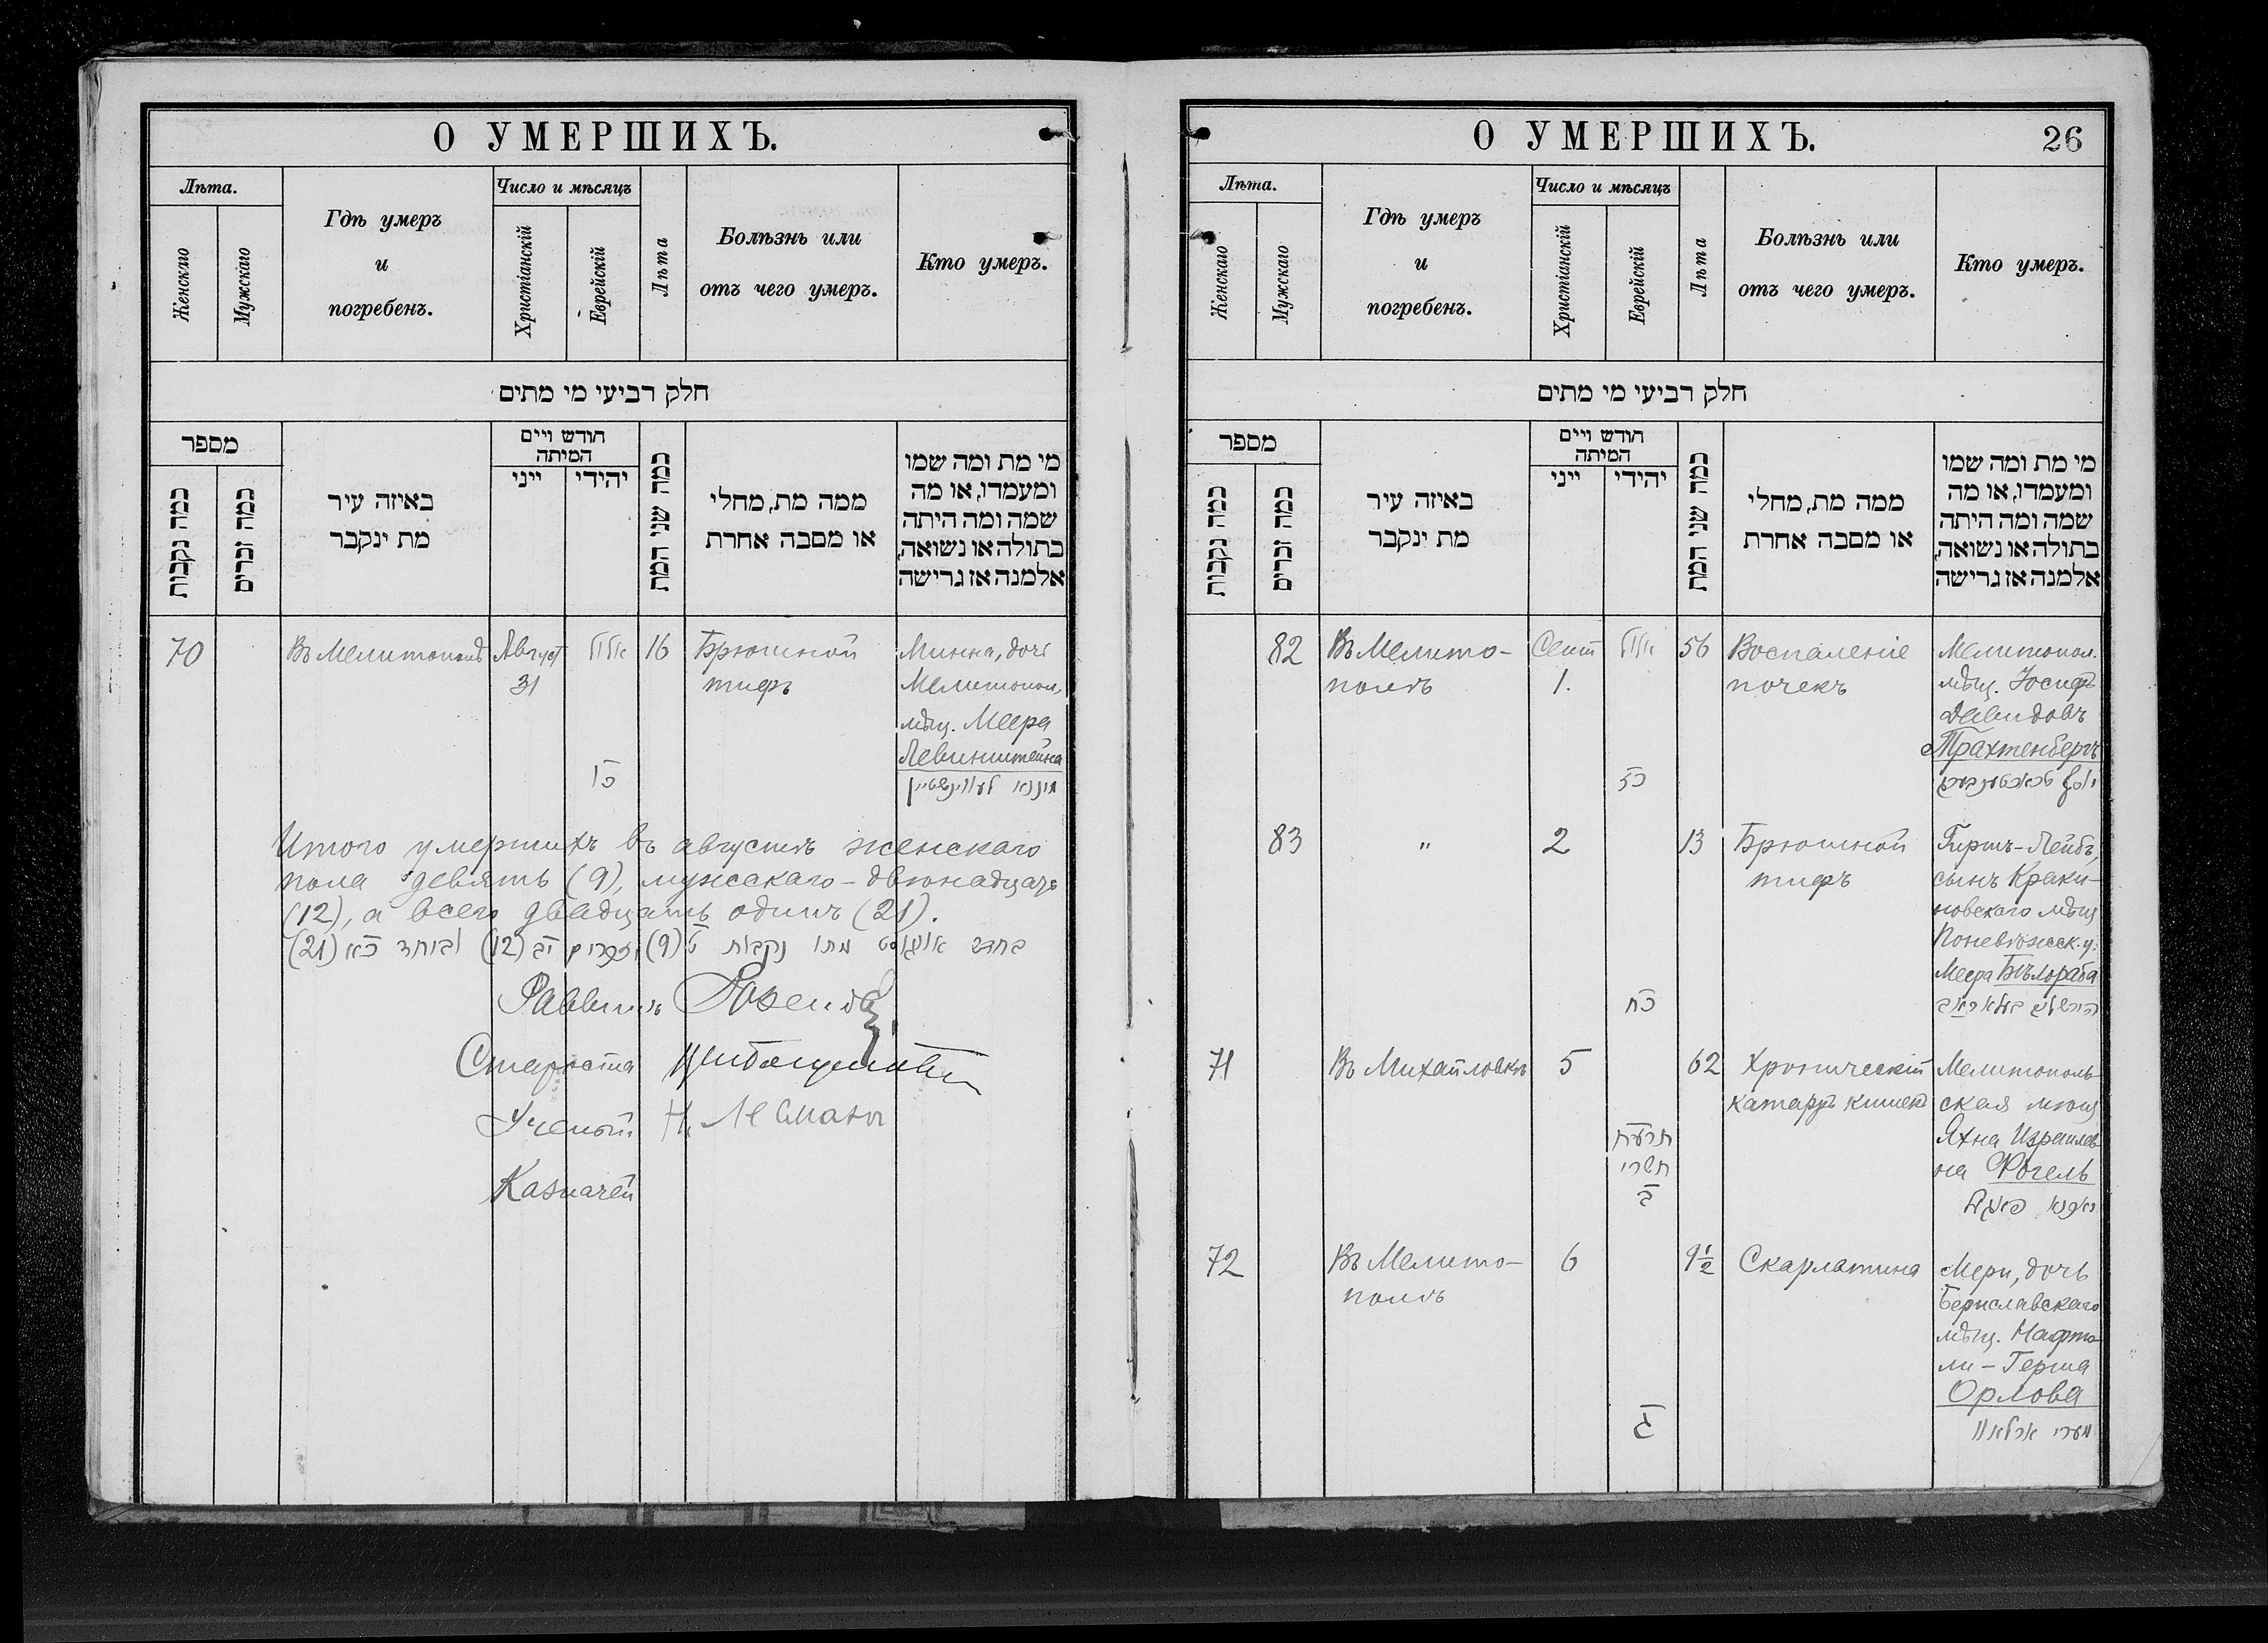 О УМЕРШИХЪ.
Лѣта.
Женскаго
Мужскаго
Гдѣ умеръ
и
погребенъ.
Число и мѣсяцъ
Христіанскій
Еврейскій
Лѣта
Болѣзнь или
отъ чего умеръ.
Кто умеръ.
חלק רביעי מי מתים
מספר
כמה נקבות
כמה זכרים
באיזה עיר
מת ינקבר
חודש ויים
המיתה
ייני
יהודי
כמה שני המת
ממה מת, מחלי
או מסבה אחרת
מי מת ומה שמו
ומעמדו, או מה
שמה ומה היתה
בתולה או נשואה,
אלמנה אז גרישה
70
Въ Мелитополѣ
Август
31
אלול
כו
16
Брюшной
тифъ
Минна, дочь
Мелитопол.
мѣщ. Меера
Левинштейна
מיננא לעווינשטיין
Итого умершихъ въ августѣ женскаго
пола девять (9), мужскаго - двѣнадцать
(12), а всего двадцать одинъ (21).
בחדש אויגוסט מתו נקבות ט (9) וזכרים יב (12) וביחד כא (21)
Раввинъ
Староста
Ученый
Казначей
О УМЕРШИХЪ.
26
Лѣта.
Женскаго
Мужскаго
Гдѣ умеръ
и
погребенъ.
Число и мѣсяцъ
Христіанскій
Еврейскій
Лѣта
Болѣзнь или
отъ чего умеръ.
Кто умеръ.
חלק רביעי מי מתים
מספר
כמה נקבות
כמה זכרים
באיזה עיר
מת ינקבר
חודש ויים
המיתה
ייני
יהידי
כמה שני המת
ממה מת, מחלי
או מסבה אחרת
מי מת ומה שמו
ומעמדו, או מה
שמה ומה היתה
בתולה או נשואה,
אלמנה אז גרישה
82
Въ Мелито-
полѣ
Сент
1.
אלול
כז
56
Воспаленіе
почекъ
Мелитопол.
мѣщ. Іосифъ
Давидовъ
Трахтенбергъ
יוסף טראכטענבערג
83
"
2
כח
13
Брюшной
тифъ
Гиршъ-Лейбъ,
сынъ Краки-
новскаго мѣщ
Поневѣжск. у.
Меера Бѣлораба
71
Въ Михайловкѣ
5
תרעח
תשרי
ב
62
Хроническій
катарръ кишекъ
Мелитополь-
ская мѣщ
Яхна Израилев
на Фогель
יאכנא פאגעל
72
Въ Мелито-
полѣ
6
ג
9½
Скарлатина
Мери, дочь
Бериславскаго
мѣщ. Нафто
ли-Герша
Орлова
מערי ארלאוו